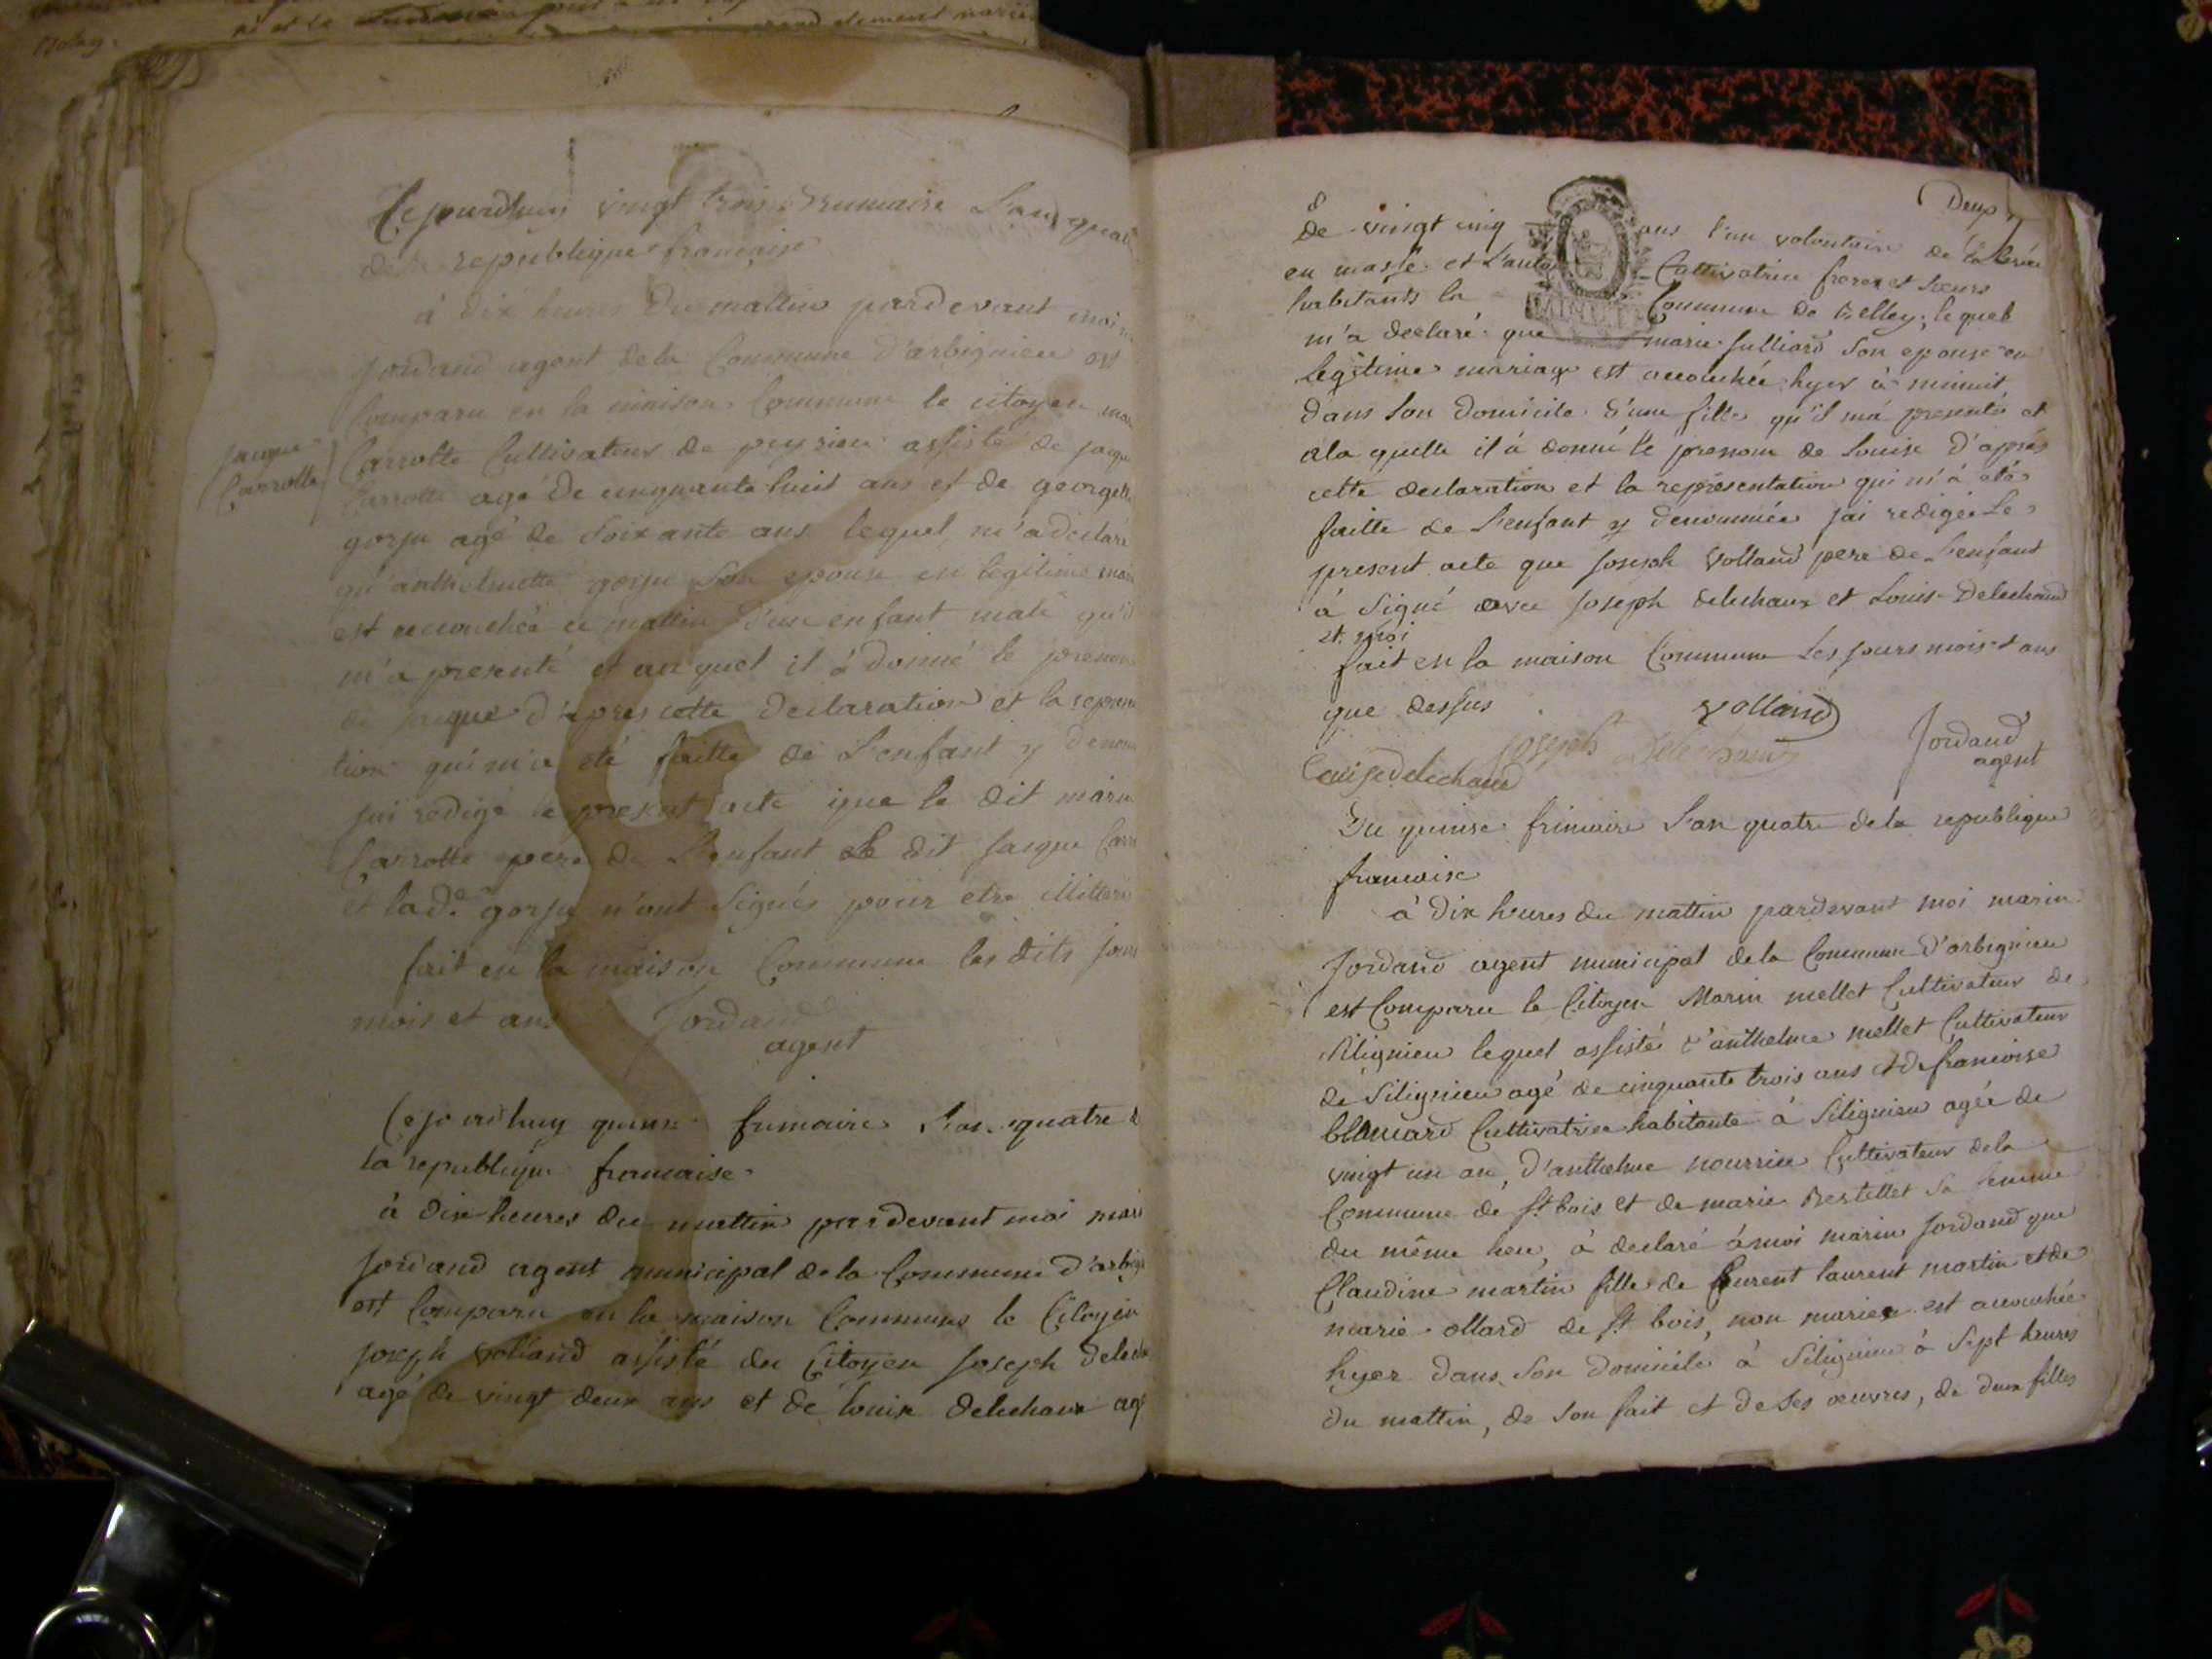 Jacque
Carrotte
Cejourdhuy vingt trois Brumaire L'an quat
dela republique francaise
à dix heures du mattin pardevant moi
Jordand agent dela Commune d'arbignieu est
Comparu en la maison Commune le citoyen mar
Carrotte Cultivateur de peysieu assisté de jacqu
Carrotte agé de cinquante huit ans et de georgette
gorju agé de soixante ans lequel m'a déclaré
qu'anthelmette gorju son epouse en légitime mari
est accouchéé ce mattin d'un enfant mâle qu'il
m'a presenté et au quel il à donné le prenom
de jacque d'apres cette declaration et la represen
tion qui m'a eté faitte de L'enfant y denom
jai redigé le present acte que le dit marin
Carrotte pere de L'enfant Le dit Jacque Carr
et lade. gorju n'ont signés pour etre illitere
fait en la maison Commune les dits jour
mois et ans Jordand
agent
Cejourdhuy quinze frimaire L'an quatre d
la republique francaise
à dix heures du mattin pardevant moi mari
Jordand agent municipal dela Commune d'arbign
est Comparu en la maison Commune le Citoyen
Joseph Volland assisté du Citoyen Joseph delech
agé de vingt deux ans et de louise delechaux agé
Deux
de vingt cinq ans l'un volontaire de la levée
en masse et L'autre Cultivatrice freres et sœurs
habitants la Commune de Belley, lequel
m'a declaré que marie Julliard son epouse en
legitime mariage est accouchée hyer à minuit
dans son domicile d'une fille qu'il m'a presenté et
ala quelle il à donné le prenom de Louise d'aprés
cette declaration et la representation qui m'à été
faitte de L'enfant y denommée jai redigée Le
present acte que Joseph Volland pere de L'enfant
à signé avec Joseph delechaux et Louis Delechaud
et moi
fait en la maison Commune Les jours mois et ans
que dessus Volland
Joseph Delechaux Jordand
agent
Louise delechaud
Du quinse frimaire L'an quatre dela republique
francaise
à dix heures du mattin pardevant moi marin
Jordand agent municipal dela Commune d'arbignieu
est Comparu le Citoyen Marin mellet Cultivateur de
Silignieu lequel assisté d'anthelme mellet Cultivateur
de Silignieu agé de cinquante trois ans et de francoise
blanchard Cultivatrice habitante à Silignieu agée de
vingt un an, d'anthelme nourrice Cultivateur dela
Commune de St bois et de marie Bestellet sa femme
du même lieu, à declaré à moi marin Jordand que
Claudine martin fille de laurent martin et de
marie ollard de St bois, non mariée est accouchée
hyer dans son domicile à Silignieu à sept heures
du mattin, de son fait et de ses œuvres, de deux filles